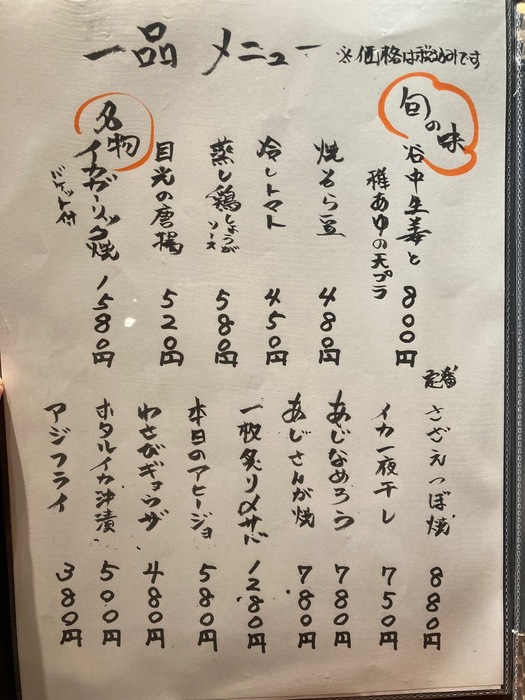 一品 メニュー
※価格は税込です
旬の味
谷中生姜と
稚あゆの天プラ
800円
焼そら豆
480円
冷しトマト
450円
蒸し鶏しょうが
ソース
580円
目光の唐揚
520円
名物
イカガーリック焼
バケット付
1580円
定番
さざえつぼ焼
880円
イカ一夜干し
750円
あじなめろう
780円
あじさんが焼
780円
一枚炙り〆サバ
1280円
本日のアヒージョ
580円
わさびギョウザ
480円
ホタルイカ沖漬
500円
アジフライ
380円